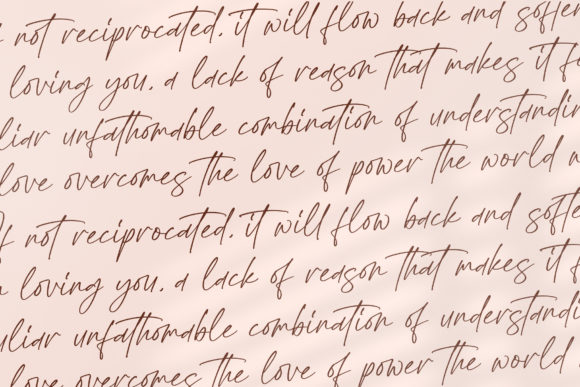 not reciprocated. it will flow back and soften
loving you. a lack of reason that makes it
unfathomable combination of understanding
love overcomes the love of power the world
if not reciprocated. it will flow back and soften
loving you. a lack of reason that makes it
unfathomable combination of understanding
love overcomes the love of power the world